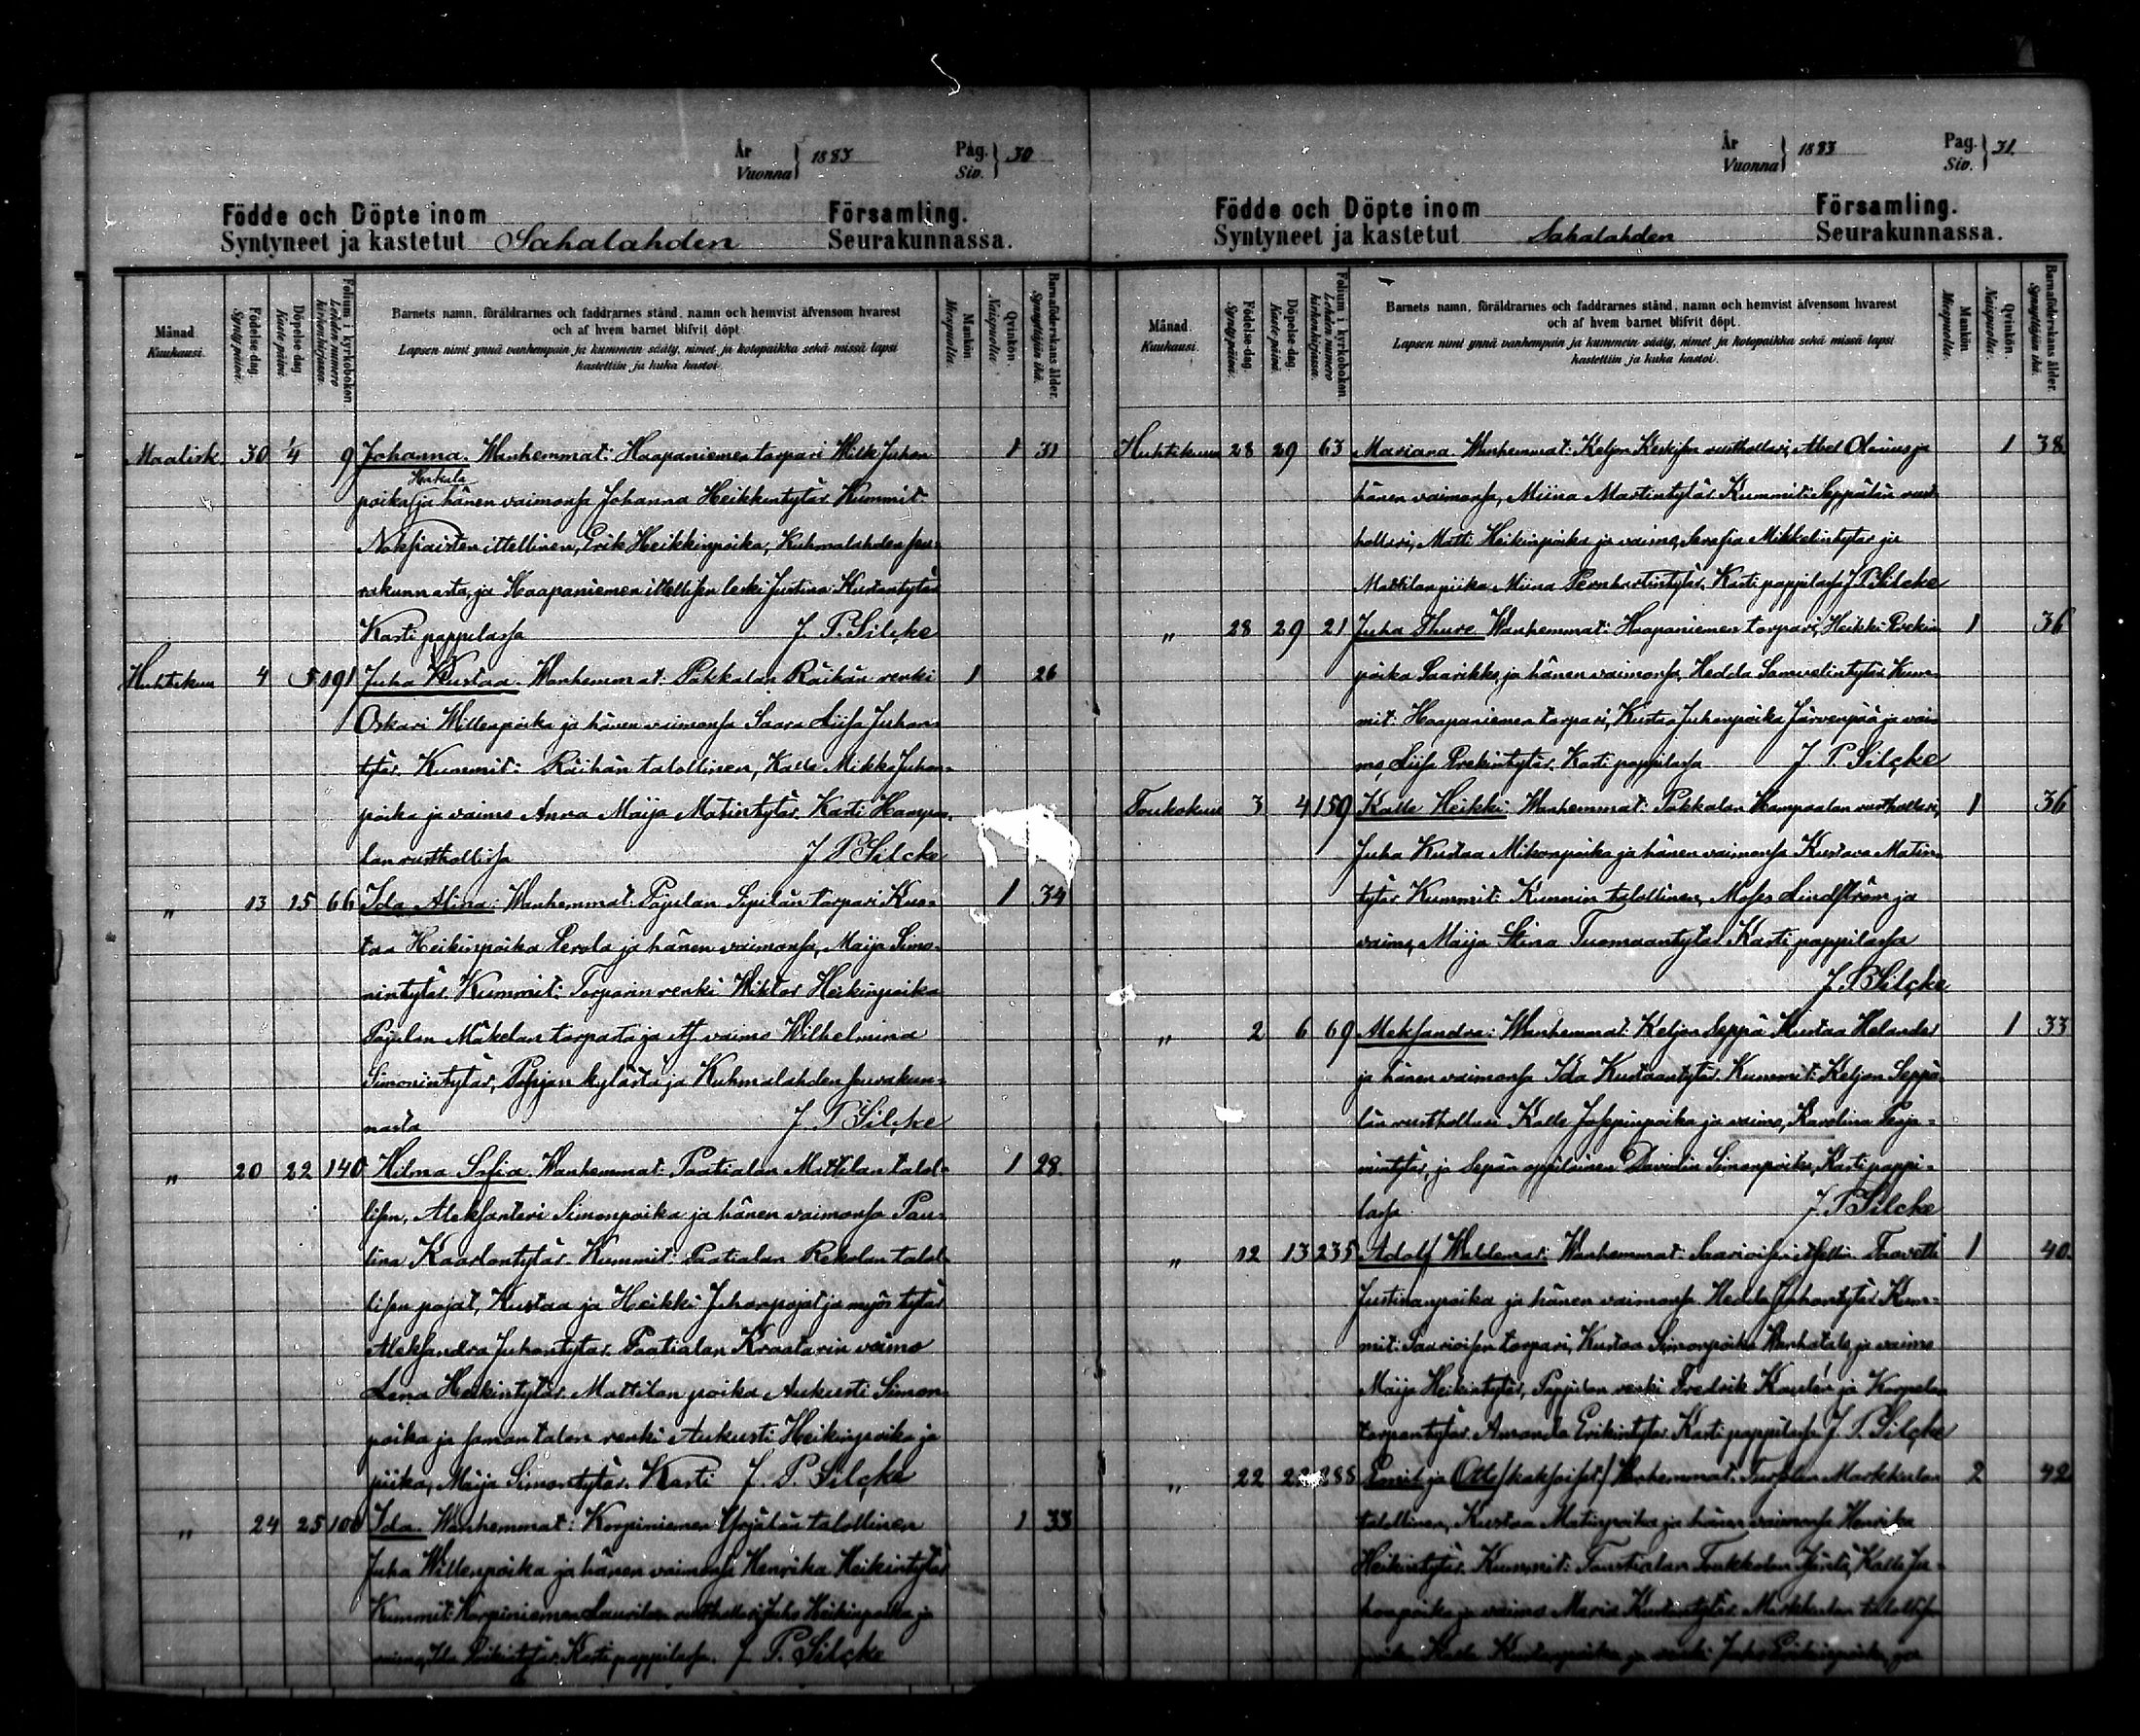 År
Vuonna } 1883
Påg.
Siv. } 30
Födde och Döpte inom
Syntyneet ja kastetut Sahalahden
Församling.
Seurakunnassa.
Månad.
Kuukausi.
Födelse dag.
Synty päivä.
Döpelse dag.
Kaste päivä.
Folium i kyrkoboken.
Lehden numero kirkonkirjassa.
Barnets namn, föräldrarnes och faddrarnes stånd, namn och hemvist äfvensom hvarest
och af hvem barnet blifvit döpt.
Lapsen nimi ynnä vanhempain ja kummein sääty, nimet ja kotopaikka sekä missä lapsi
kastettiin ja kuka kastoi.
Mankön.
Miespuolta.
Qvinkön.
Naispuolta.
Barnaföderskans ålder.
Synnyttäjän ikä.
Maalisk. 30 1/4 9 Johanna. Wanhemmat: Haapaniemen torpari Wille Juhon 1 31
poika ja hänen vaimonsa Johanna Heikkintytär Kummit
ittellinen, Erik Heikkinpoika, Kuhmalahden seu-
rakunnasta, ja Haapaniemen ittellisen leski Justina Kustantytär
Kasti pappilassa J. P. Silcke
Huhtikuu 4 5 191 Juha Kustaa. Wanhemmat: Pakkalan Räihän renki 1 26
Oskari Willenpoika ja hänen vaimonsa Saara Liisa Juhon-
tytär. Kummit: Räihän talollinen, Kalle Mikko Juhon-
poika ja vaimo Anna Maija Matintytär. Kasti Hampa-
lan rusthollissa J P Silcke
" 13 15 66 Ida Alina: Wanhemmat: Pajulan Sipilän torpari Kus-
taa Heikinpoika Perola ja hänen vaimonsa, Maija Simo- 1 34
nintytär. Kummit: Torparin renki Wiktor Heikinpoika
Pajulan Mäkelan torpasta ja itt. vaimo Wilhelmina
Simonintytär, Pohjan kylästä ja Kuhmalahden seurakun-
nasta J. P Silcke
" 20 22 140 Hilma Sofia. Wanhemmat: Paatialan Mattilan talol- 1 28.
lisen, Aleksanteri Simonpoika ja hänen vaimonsa Pau-
lina Kaarlontytär. Kummit: Paatialan Rekolan talol-
lisen pojat, Kustaa ja Heikki Juhonpojat ja myös tytär
Aleksandra Juhontytär. Paatialan Kraatarin vaimo
Lena Heikintytär. Mattilan poika Aukusti Simon-
poika ja saman talon renki Aukusti Heikinpoika ja
piika, Maija Simontytär. Kasti J. P. Silcke
" 24 25 100 Ida. Wanhemmat: Korpiniemen Yrjälän talollinen 1 33
Juha Willenpoika ja hänen vaimonsa Henrika Heikintytär
Kummit: Korpiniemen Laurilan rusthollari Juho Heikinpoika ja
vaimo, Ida Kasti pappilassa. J. P. Silcke
År
Vuonna } 1883
Pag.
Siv. } 31.
Födde och Döpte inom
Syntyneet ja kastetut Sahalahden
Församling.
Seurakunnassa.
Månad.
Kuukausi.
Födelse-dag.
Synty päivä.
Döpelse dag.
Kaste päivä.
Folium i kyrkoboken.
Lehden numero kirkonkirjassa.
Barnets namn, föräldrarnes och faddrarnes stånd, namn och hemvist äfvensom hvarest
och af hvem barnet blifvit döpt.
Lapsen nimi ynnä vanhempain ja kummein sääty, nimet ja kotopaikka sekä missä lapsi
kastettiin ja kuka kastoi.
Mankön
Miespuolta.
Qvinkön.
Naispuolta.
Barnaföderskans ålder.
Synnyttäjän ikä.
Huhtikuu 28 29 63 Mariana Wanhemmat: Keljon rusthollari, Abel ja 1 38
hänen vaimonsa, Miina Martintytär. Kummit: Seppälän rust-
hollari, Matti Heikinpoika ja vaimo, Serafia Mikkelintytär ja
Mattilan piika Miina Pernhartintytär. Kasti pappilassa J P Silcke
" 28 29 21 Juha Thure Wanhemmat: Haapaniemen torpari, Heikki Erekin 1 36
poika Saarikko, ja hänen vaimonsa, Hedda Samuelintytär. Kum-
mit: Haapaniemen torpari, Kustaa Juhonpoika Järvenpää ja vai-
mo, Liisa Erekintytär. Kasti pappilassa J P. Silcke
Toukokuu 3 4 159 Kalle Heikki: Wanhemmat: Pakkalan Hampaalan rusthollari, 1 36
Juha Kustaa Mikonpoika ja hänen vaimonsa Kustava Matin-
tytär Kummit: Kummin talollinen, Moses Lindström ja
vaimo, Maija Stina Tuomaantytär Kasti pappilassa
J. P Silcke
" 2 6 69 Aleksandra: Wanhemmat: Keljon Seppä Kustaa Helander 1 33
ja hänen vaimonsa Ida Kustaantytär. Kummit: Keljon Seppä-
län rusthollari Kalle Joseppinpoika ja vaimo, Karolina
ja Sepän oppilainen Davidin Simonpoika, Kasti pappi-
lassa J. P Silcke
" 12 13 235 Adolf Waldemar: Wanhemmat: Saarioisen itsellin Taavetti 1 40.
Justinanpoika ja hänen vaimonsa Hedda Juhontytär Kum-
mit: Saarioisen torpari, Kustaa Simonpoika Wanhatalo, ja vaimo
Maija Heikintytär, Pappilan renki Fredrik ja Korpelan
torpantytär Amanda Erikintytär. Kasti pappilassa J. P. Silcke
" 22 288 Emil ja Otto (kaksoiset) Wanhemmat: Turpelan Markkulan 2 42
talollinen, Kustaa Matinpoika ja hänen vaimonsa Henrika
Heikintytär. Kummit: Taustialan Toukkolan Kalle Ju-
honpoika ja vaimo Maria Kustantytär. Markkulan talollisen
poika Kalle Kustanpoika ja renki Juho ja